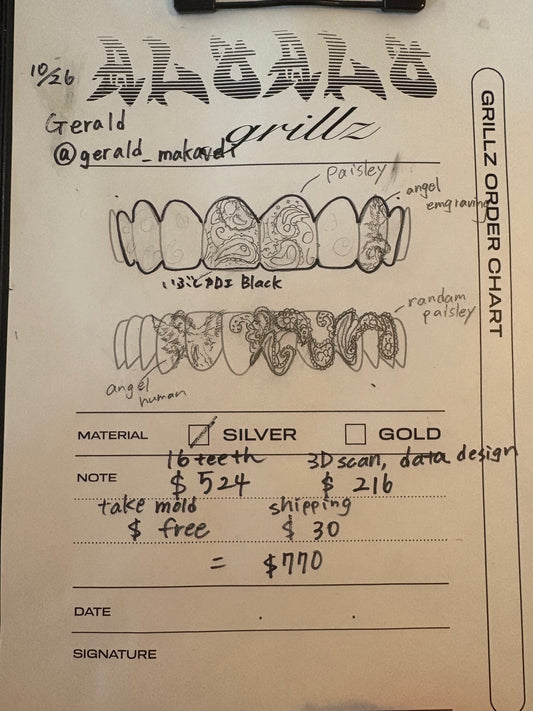 10/26
ALUALU
grillz
Gerald
@gerald_makaveli
GRILLZ ORDER CHART
paisley
angel
emgraving
いぶし加工 Black
randam
paisley
angel
human
MATERIAL SILVER GOLD
16 teeth 3D scan, data design
NOTE $ 524 $ 216
take mold shipping
$ free $ 30
= $770
DATE
SIGNATURE